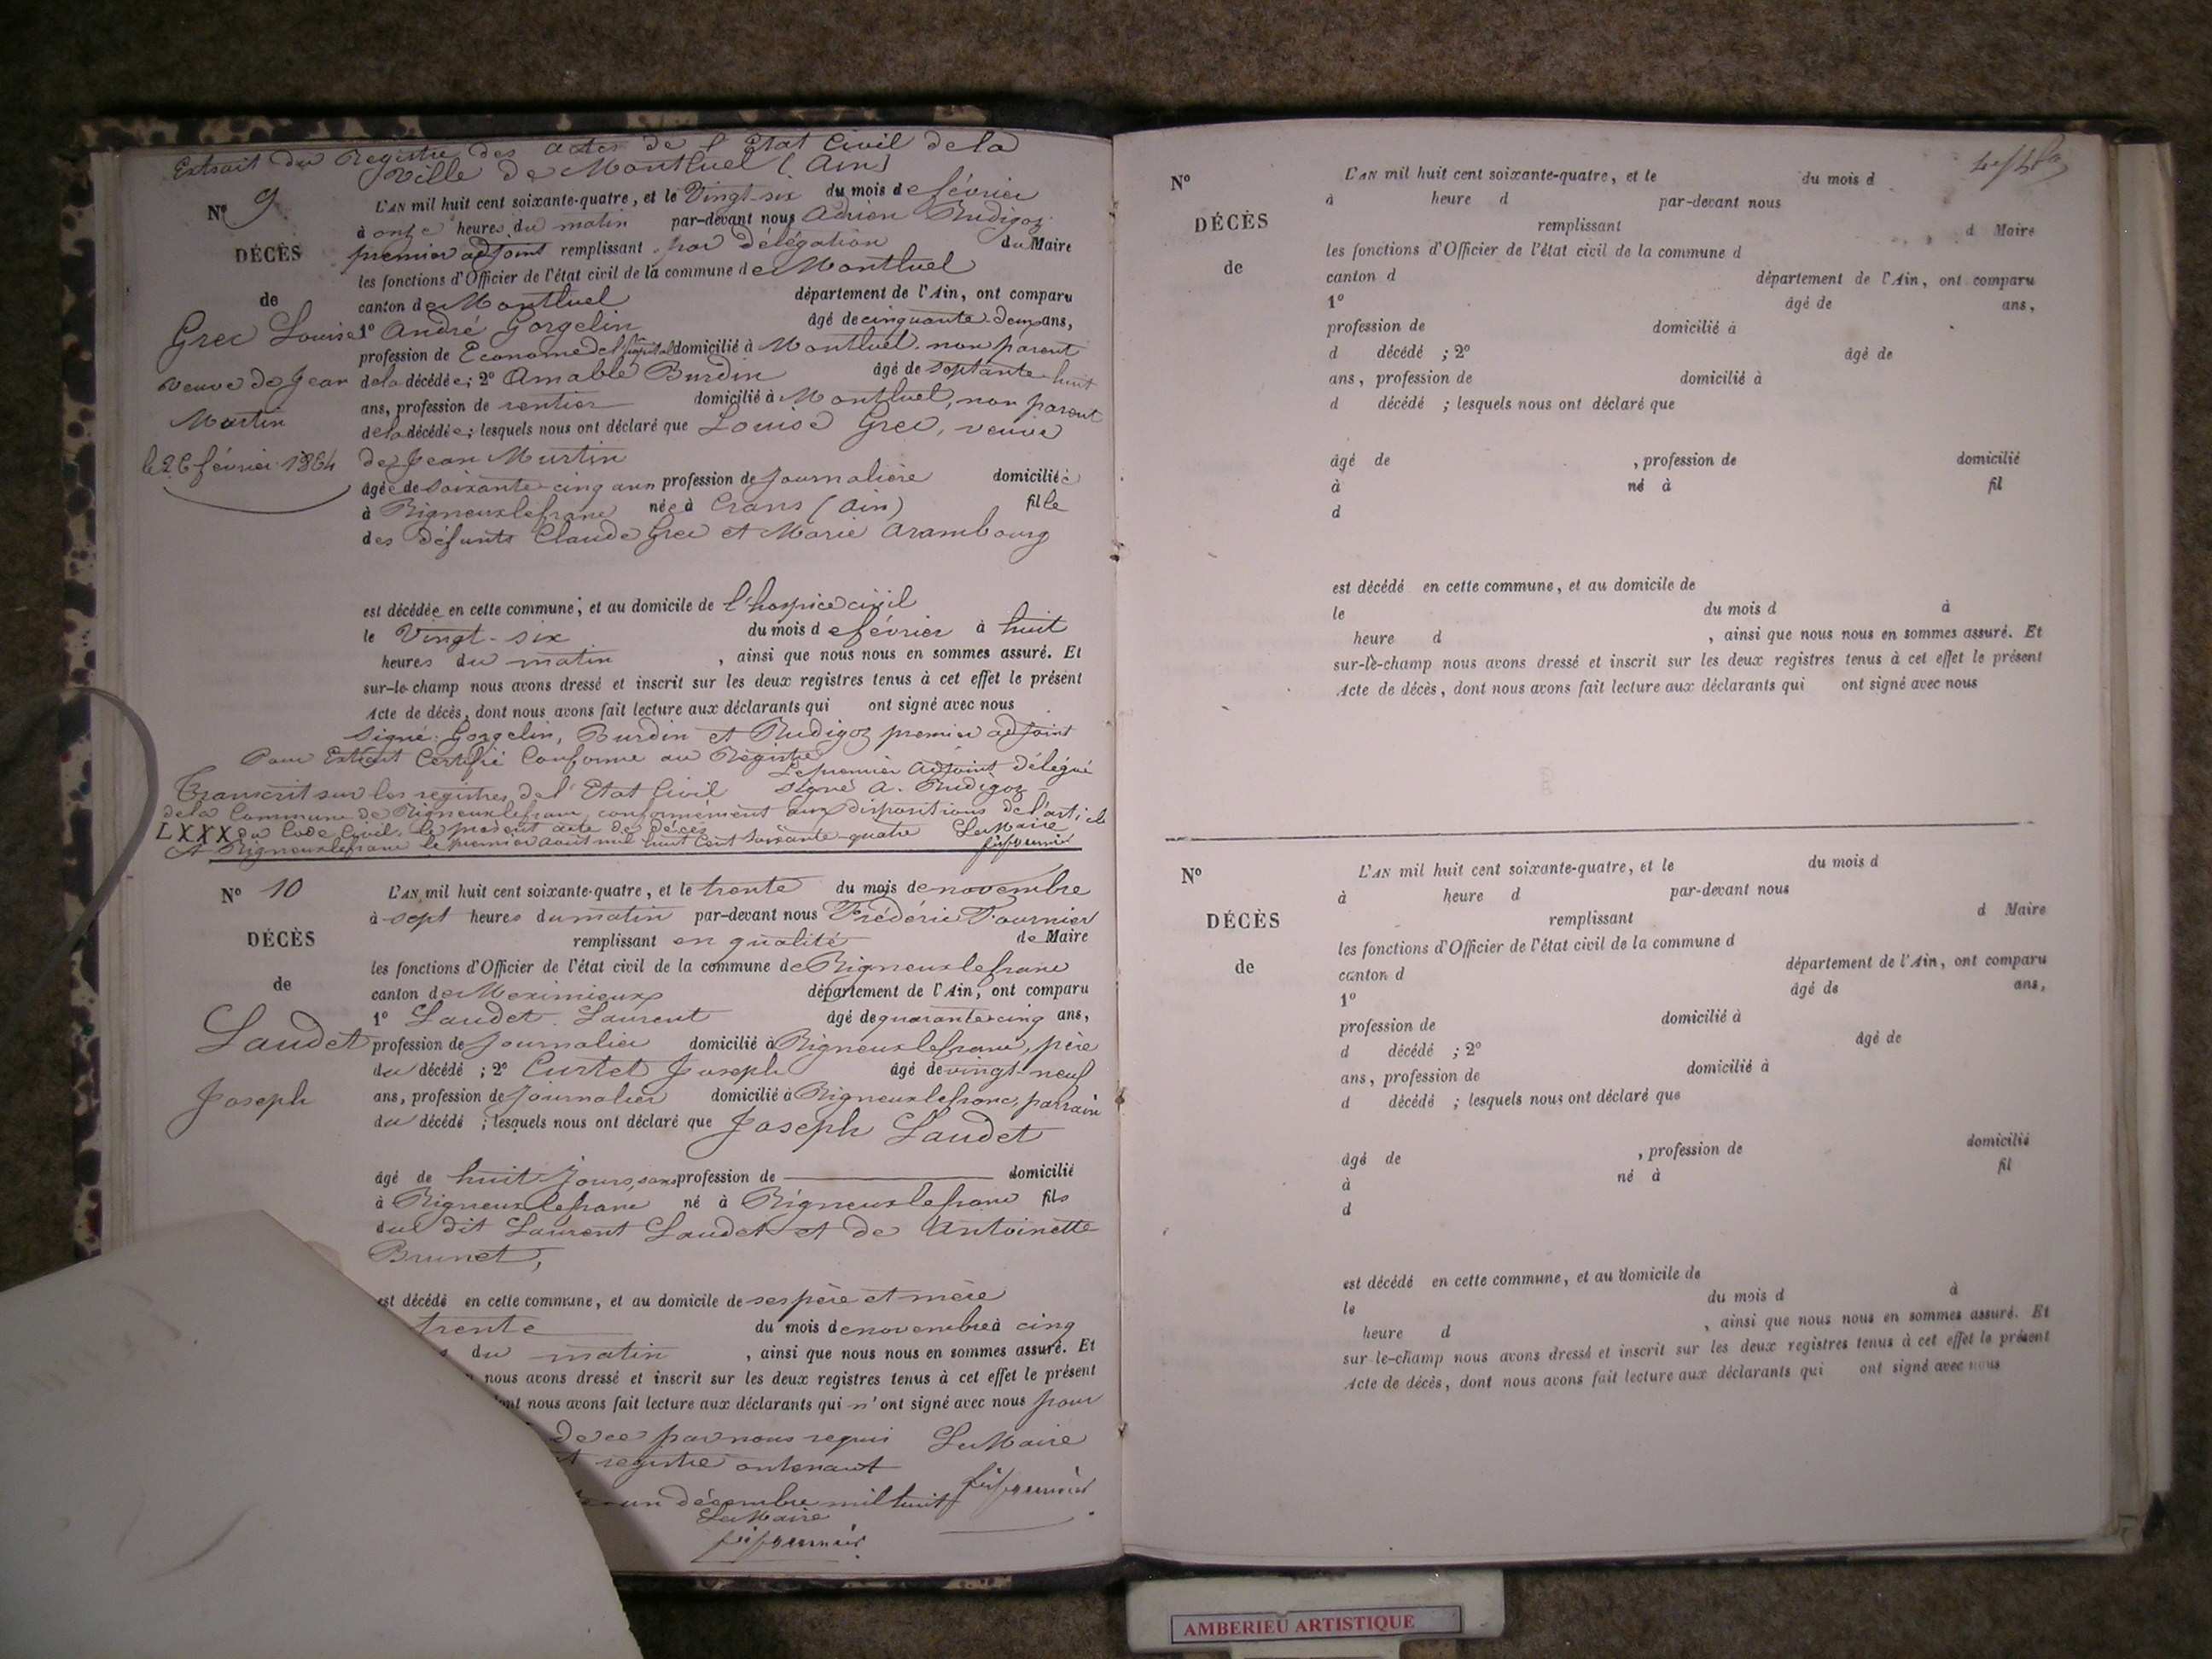 Extrait du Registre des actes de l'Etat Civil de la
Ville de Montluel (Ain)
N° 9
DÉCÈS
de
Grec Louise
veuve de Jean
Martin
le 26 février 1864
L'AN mil huit cent soixante-quatre, et le Vingt-six du mois de février
à onze heures du matin par-devant nous Adrien Rudigoz
premier adjoint remplissant par délégation du Maire
les fonctions d'Officier de l'état civil de la commune de Montluel
canton de Montluel département de l'Ain, ont comparu
1° André Gorgelin âgé de cinquante-deux ans,
profession de Econome de l'hôpital domicilié à Montluel, non parent
de la décédée; 2° Amable Burdin âgé de septante-huit
ans, profession de rentier domicilié à Montluel, non parent
de la décédée; lesquels nous ont déclaré que Louise Grec, veuve
de Jean Martin
âgée de soixante-cinq ans profession de journalière domiciliée
à Rigneuxlefranc née à Crans (Ain) fille
des défunts Claude Grec et Marie Arambourg
est décédée en cette commune, et au domicile de l'hospice civil
le Vingt-six du mois de février à huit
heures du matin, ainsi que nous nous en sommes assuré. Et
sur-le-champ nous avons dressé et inscrit sur les deux registres tenus à cet effet le présent
Acte de décès, dont nous avons fait lecture aux déclarants qui ont signé avec nous
Signé: Gorgelin, Burdin et Rudigoz premier adjoint
Pour Extrait Certifié Conforme au Registre
Le premier adjoint délégué
Signé A. Rudigoz
Transcrit sur les registres de l'Etat Civil
de la Commune de Rigneuxlefranc conformément aux dispositions de l'article
LXXX du Code Civil, le présent acte de décès
A Rigneuxlefranc le premier août mil huit cent soixante-quatre Le Maire
N° 10
DÉCÈS
de
Laudet
Joseph
L'AN mil huit cent soixante-quatre, et le trente du mois de novembre
à sept heures du matin par-devant nous Frédéric Fournier
remplissant en qualité de Maire
les fonctions d'Officier de l'état civil de la commune de Rigneuxlefranc
canton de Meximieux département de l'Ain, ont comparu
1° Laudet Laurent âgé de quarante-cinq ans,
profession de journalier domicilié à Rigneuxlefranc, père
du décédé ; 2° Curtet Joseph âgé de vingt-neuf
ans, profession de journalier domicilié à Rigneuxlefranc, parrain
du décédé ; lesquels nous ont déclaré que Joseph Laudet
âgé de huit jours, sans profession de domicilié
à Rigneuxlefranc né à Rigneuxlefranc fils
du dit Laurent Laudet et de Antoinette
Brunet,
est décédé en cette commune, et au domicile de ses père et mère
trente du mois de novembre à cinq
du matin, ainsi que nous nous en sommes assuré. Et
nous avons dressé et inscrit sur les deux registres tenus à cet effet le présent
nous avons fait lecture aux déclarants qui n'ont signé avec nous pour
de ce par nous requis Le Maire
registre contenant
un décembre mil huit
Le Maire
N°
DÉCÈS
de
L'AN mil huit cent soixante-quatre, et le du mois d
à heure d par-devant nous
remplissant d Maire
les fonctions d'Officier de l'état civil de la commune d
canton d département de l'Ain, ont comparu
1° âgé de ans,
profession de domicilié à
d décédé ; 2° âgé de
ans, profession de domicilié à
d décédé ; lesquels nous ont déclaré que
âgé de , profession de domicilié
à né à fil
d
est décédé en cette commune, et au domicile de
le du mois d à
heure d , ainsi que nous nous en sommes assuré. Et
sur-le-champ nous avons dressé et inscrit sur les deux registres tenus à cet effet le présent
Acte de décès, dont nous avons fait lecture aux déclarants qui ont signé avec nous
N°
DÉCÈS
de
L'AN mil huit cent soixante-quatre, et le du mois d
à heure d par-devant nous
remplissant d Maire
les fonctions d'Officier de l'état civil de la commune d
canton d département de l'Ain, ont comparu
1° âgé de ans,
profession de domicilié à
d décédé ; 2° âgé de
ans, profession de domicilié à
d décédé ; lesquels nous ont déclaré que
âgé de , profession de domicilié
à né à fil
d
est décédé en cette commune, et au domicile de
le du mois d à
heure d , ainsi que nous nous en sommes assuré. Et
sur-le-champ nous avons dressé et inscrit sur les deux registres tenus à cet effet le présent
Acte de décès, dont nous avons fait lecture aux déclarants qui ont signé avec nous
AMBERIEU ARTISTIQUE